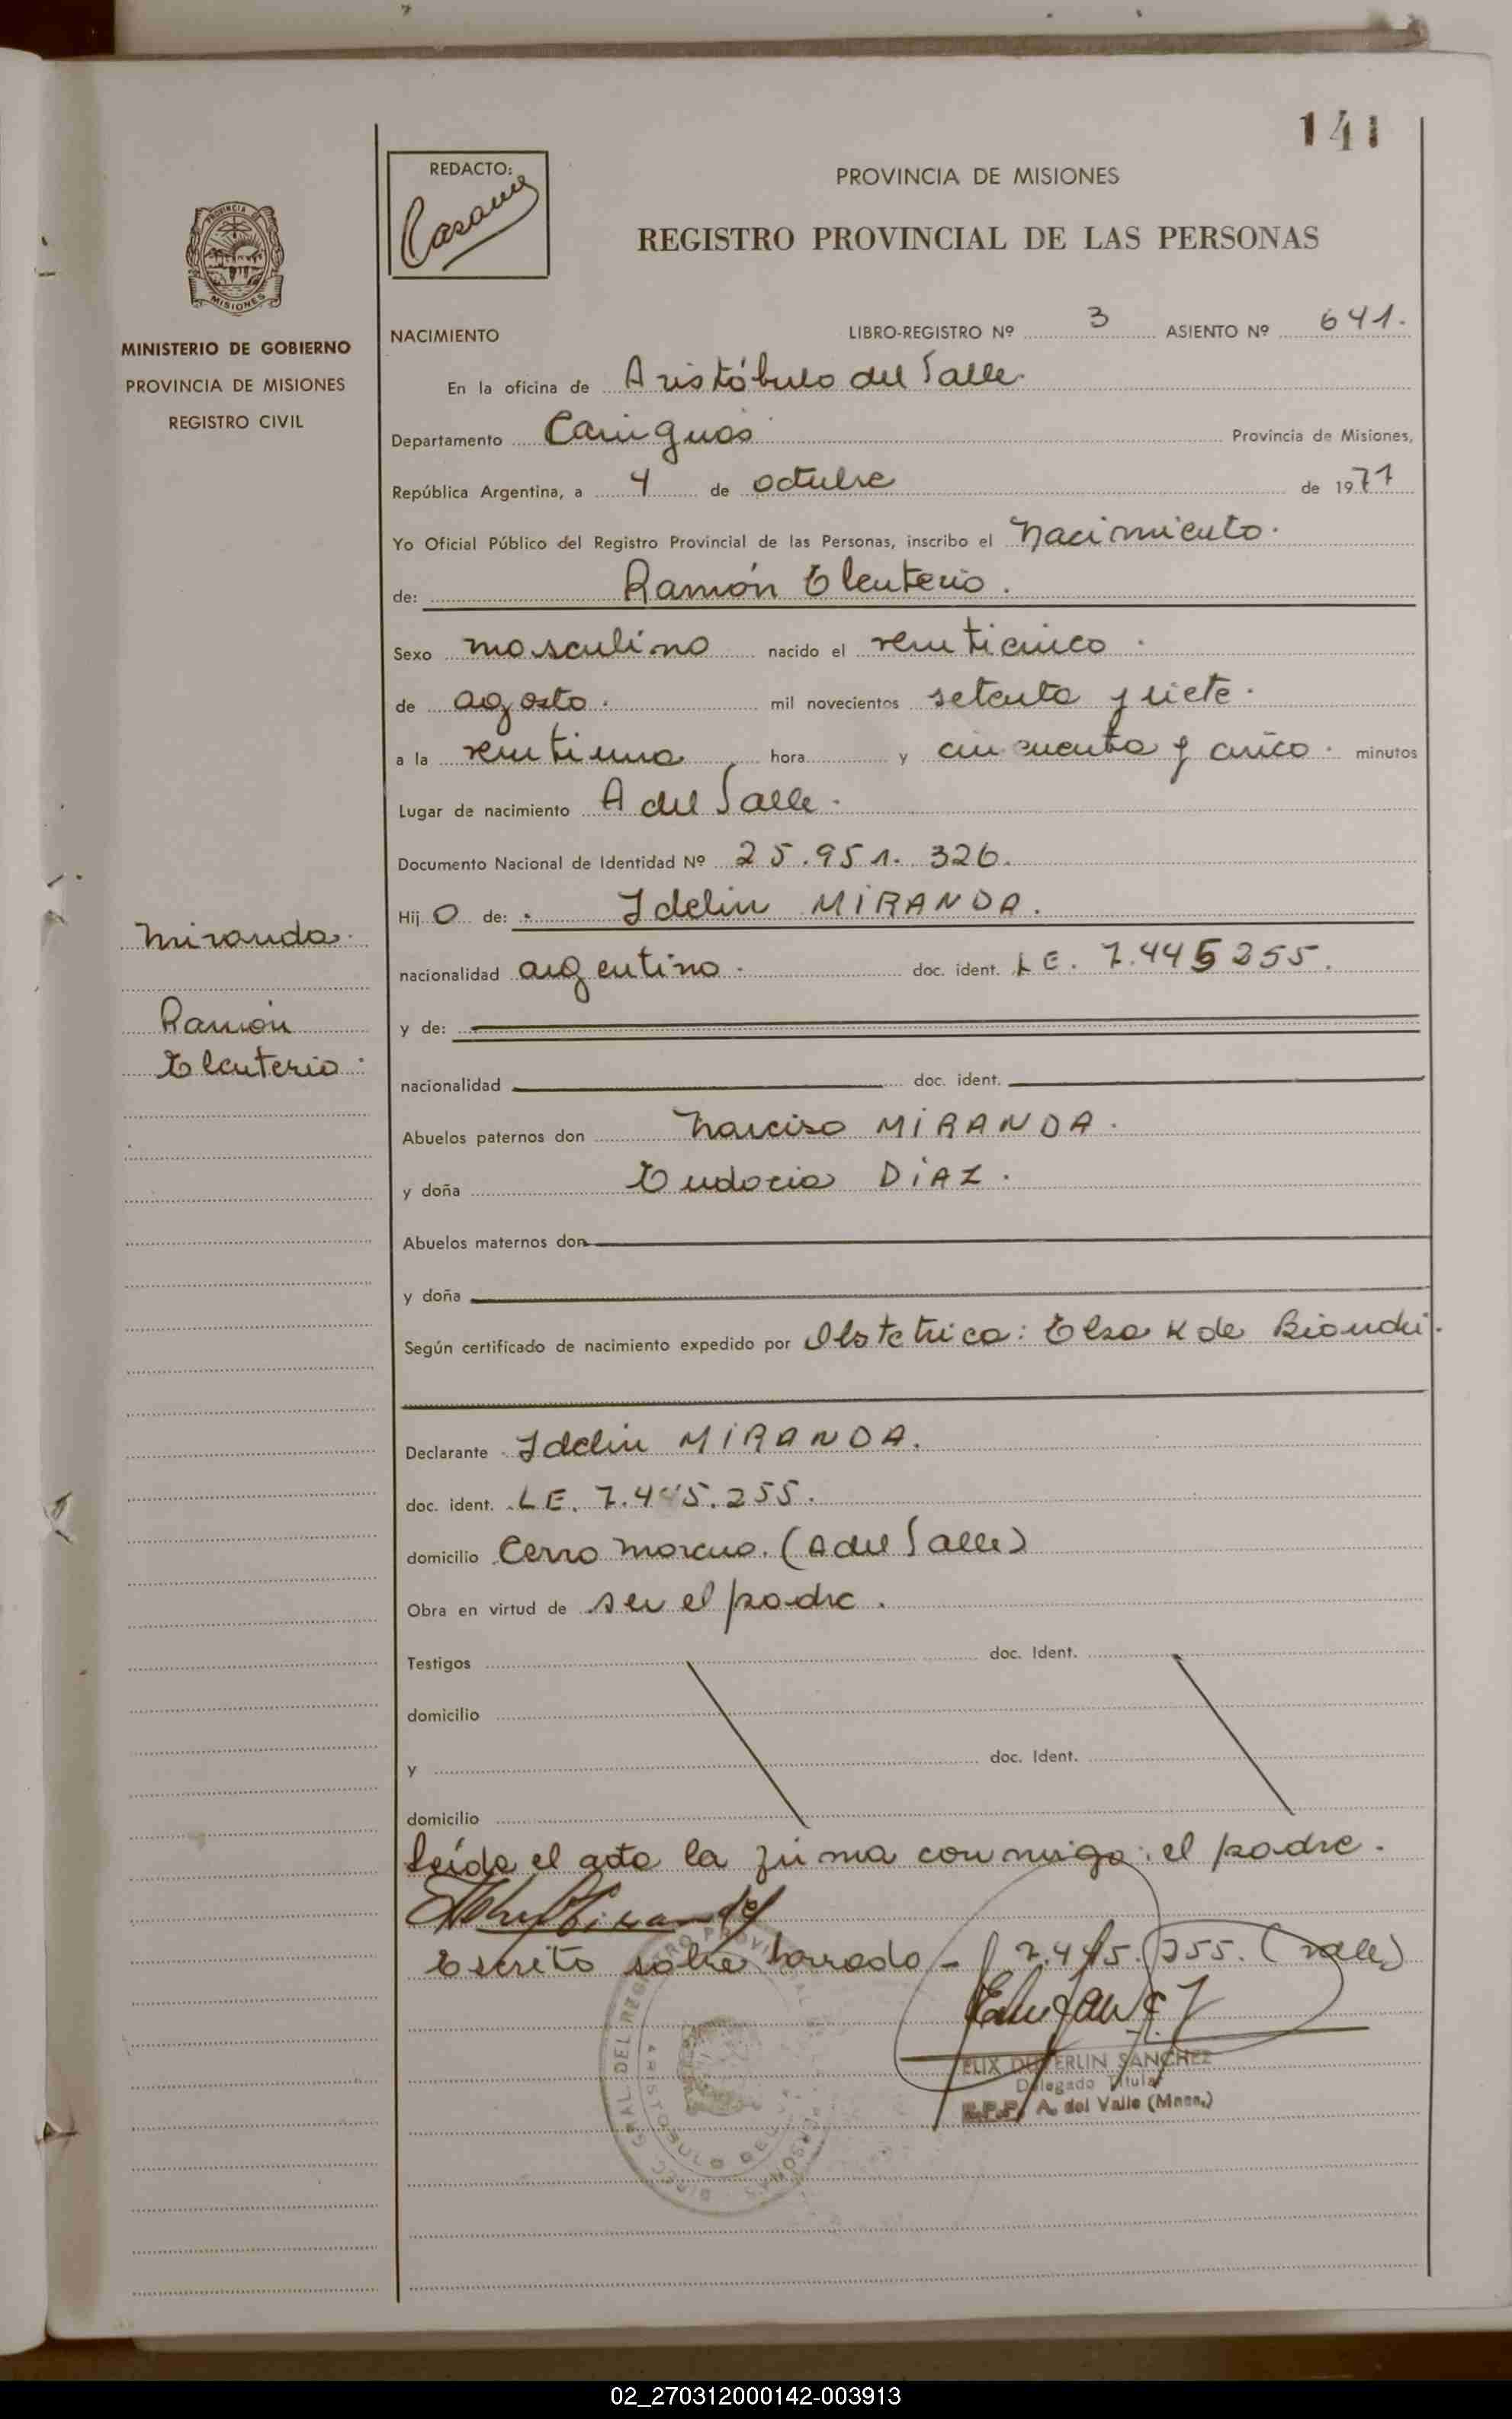 141
REDACTO:
PROVINCIA DE MISIONES
REGISTRO PROVINCIAL DE LAS PERSONAS
MISIONES
MINISTERIO DE GOBIERNO
PROVINCIA DE MISIONES
REGISTRO CIVIL
NACIMIENTO LIBRO-REGISTRO Nº 3 ASIENTO Nº 641.
En la oficina de Aristóbulo del Valle.
Departamento Cainguás Provincia de Misiones,
República Argentina, a 4 de octubre de 1977
Yo Oficial Público del Registro Provincial de las Personas, inscribo el Nacimiento.
de: Ramón Eleuterio.
Sexo masculino nacido el veinticinco.
de agosto. mil novecientos setenta y siete.
a la veintiuna hora y cincuenta y cinco. minutos
Lugar de nacimiento A del Valle.
Documento Nacional de Identidad Nº 25.951.326.
Hijo de: Idelin MIRANDA.
Miranda.
nacionalidad argentino. doc. ident. L E. 7.445255.
Ramón
y de:
Eleuterio:
nacionalidad doc. ident.
Abuelos paternos don Narciso MIRANDA.
y doña Eudocia DIAZ.
Abuelos maternos don
y doña
Según certificado de nacimiento expedido por Obstetrica: Elsa K de Biondi.
Declarante Idelin MIRANDA.
doc. ident. L E. 7.445.255.
domicilio Cerro Moreno. (A del Valle)
Obra en virtud de ser el padre.
Testigos doc. Ident.
domicilio
y doc. Ident.
domicilio
Leída el acta la firma conmigo: el padre.
Escrito sobre borrado - 7.445.255. (vale)
FELIX DUVERLIN SANCHEZ
Delegado Titular
R.P.P. A. del Valle (Mnes.)
DIREC. GRAL DEL REGISTRO PROVINCIAL PERSONAS
ARISTOBULO DEL
02_270312000142-003913